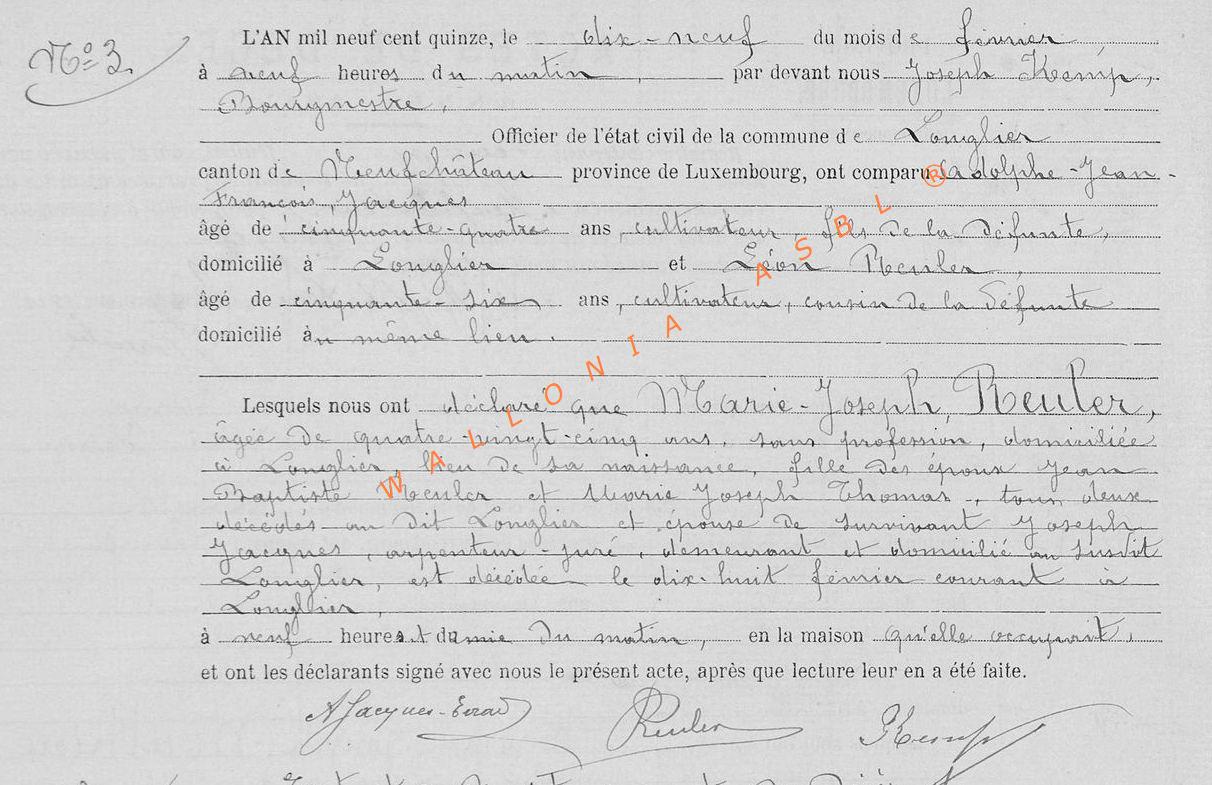 N° 3.
L'AN mil neuf cent quinze, le dix-neuf du mois de février,
à neuf heures du matin, par devant nous Joseph Kemp,
Bourgmestre,
Officier de l'état civil de la commune de Longlier
canton de Neufchâteau province de Luxembourg, ont comparu Adolphe-Jean-
François, Jacques
âgé de cinquante-quatre ans, cultivateur, fils de la défunte,
domicilié à Longlier et Léon Reuler,
âgé de cinquante-six ans, cultivateur, cousin de la défunte
domicilié au même lieu.
Lesquels nous ont déclaré que Marie-Joseph, Reuler,
âgée de quatre-vingt-cinq ans, sans profession, domiciliée
à Longlier, lieu de sa naissance, fille des époux Jean
Baptiste Reuler et Marie Joseph Thomas, tous deux
décédés au dit Longlier et épouse de survivant Joseph
Jacques, arpenteur-juré, demeurant et domicilié au susdit
Longlier, est décédée le dix-huit février courant à
Longlier,
à neuf heures et demie du matin, en la maison qu'elle occupait,
et ont les déclarants signé avec nous le présent acte, après que lecture leur en a été faite.
A Jacques-Evrard Reuler Kemp
WALLONIA ASBL ®